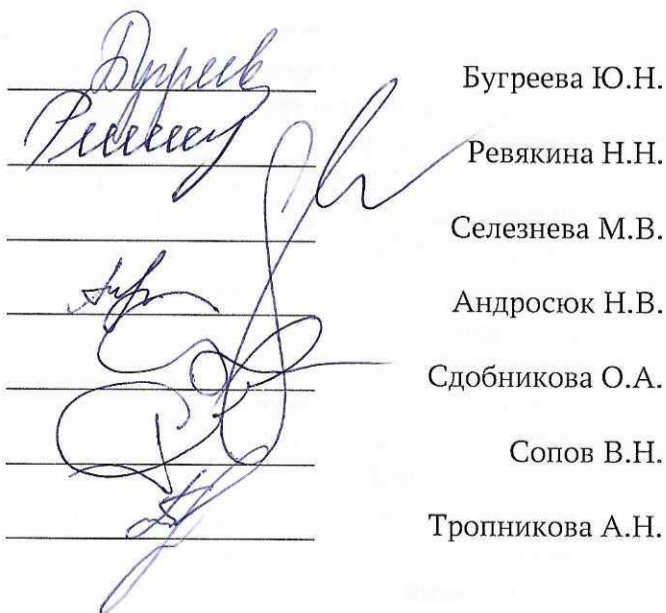 Бугреева Ю.Н.
Ревякина Н.Н.
Селезнева М.В.
Андросюк Н.В.
Сдобникова О.А.
Сопов В.Н.
Тропникова А.Н.